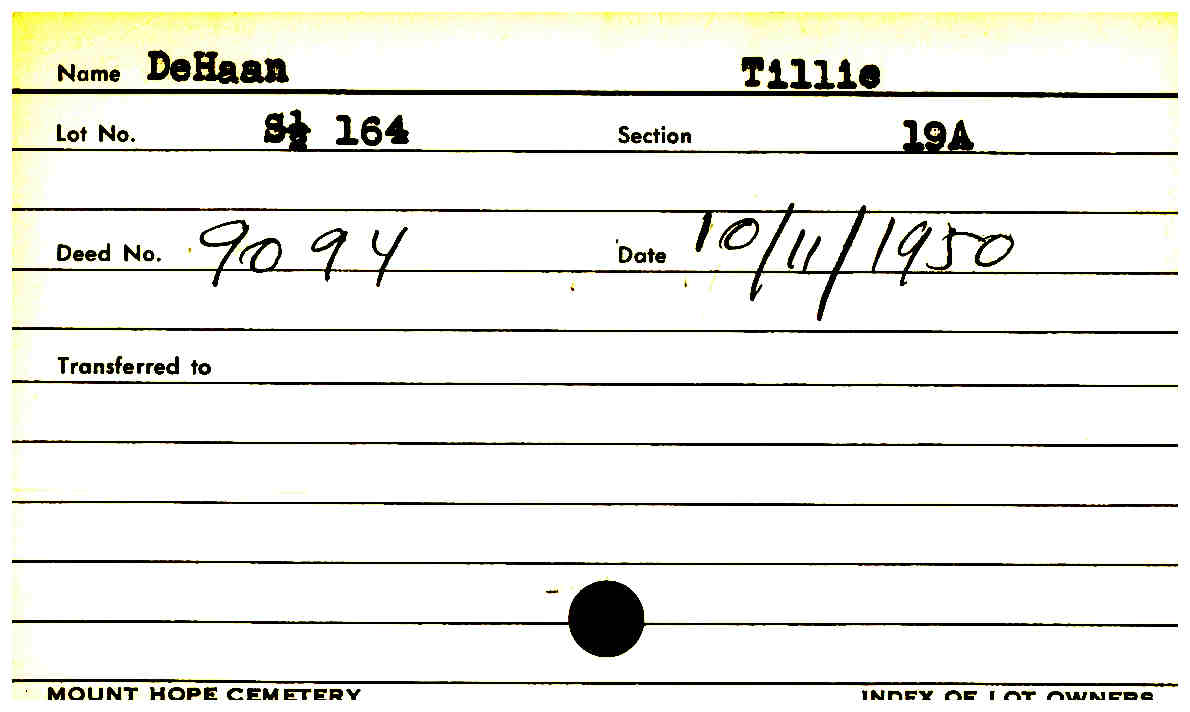 Name DeHaan Tillie
Lot No. S½ 164 Section 19A
Deed No. 9094 Date 10/11/1950
Transferred to
MOUNT HOPE CEMETERY INDEX OF LOT OWNERS